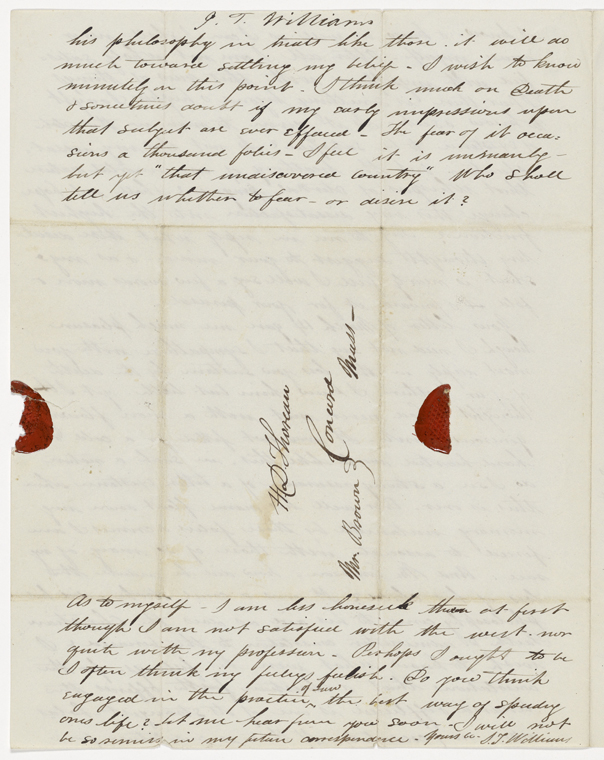 I. T. Williams
his philosophy in trials like those. it will do
much toward settling my belief - I wish to know
minutely on this point. I think much on Death
& sometimes doubt if my early impressions upon
that subject are ever effaced - The fear of it occa-
sions a thousand folies - I feel it is unmanly -
but yet "that undiscovered country" Who shall
tell us whether to fear - or desire it?
H D Thoreau
Mrs. Brown Concord Mass -
As to myself - I am less homesick than at first
though I am not satisfied with the west. nor
quite with my profession - Perhaps I ought to be
I often think my feelings foolish. Do you think
engaged in the practice of law the best way of spending
ones life? let me hear from you soon - I will not
be so remiss in my future correspondence - Yours &c. I. T. Williams